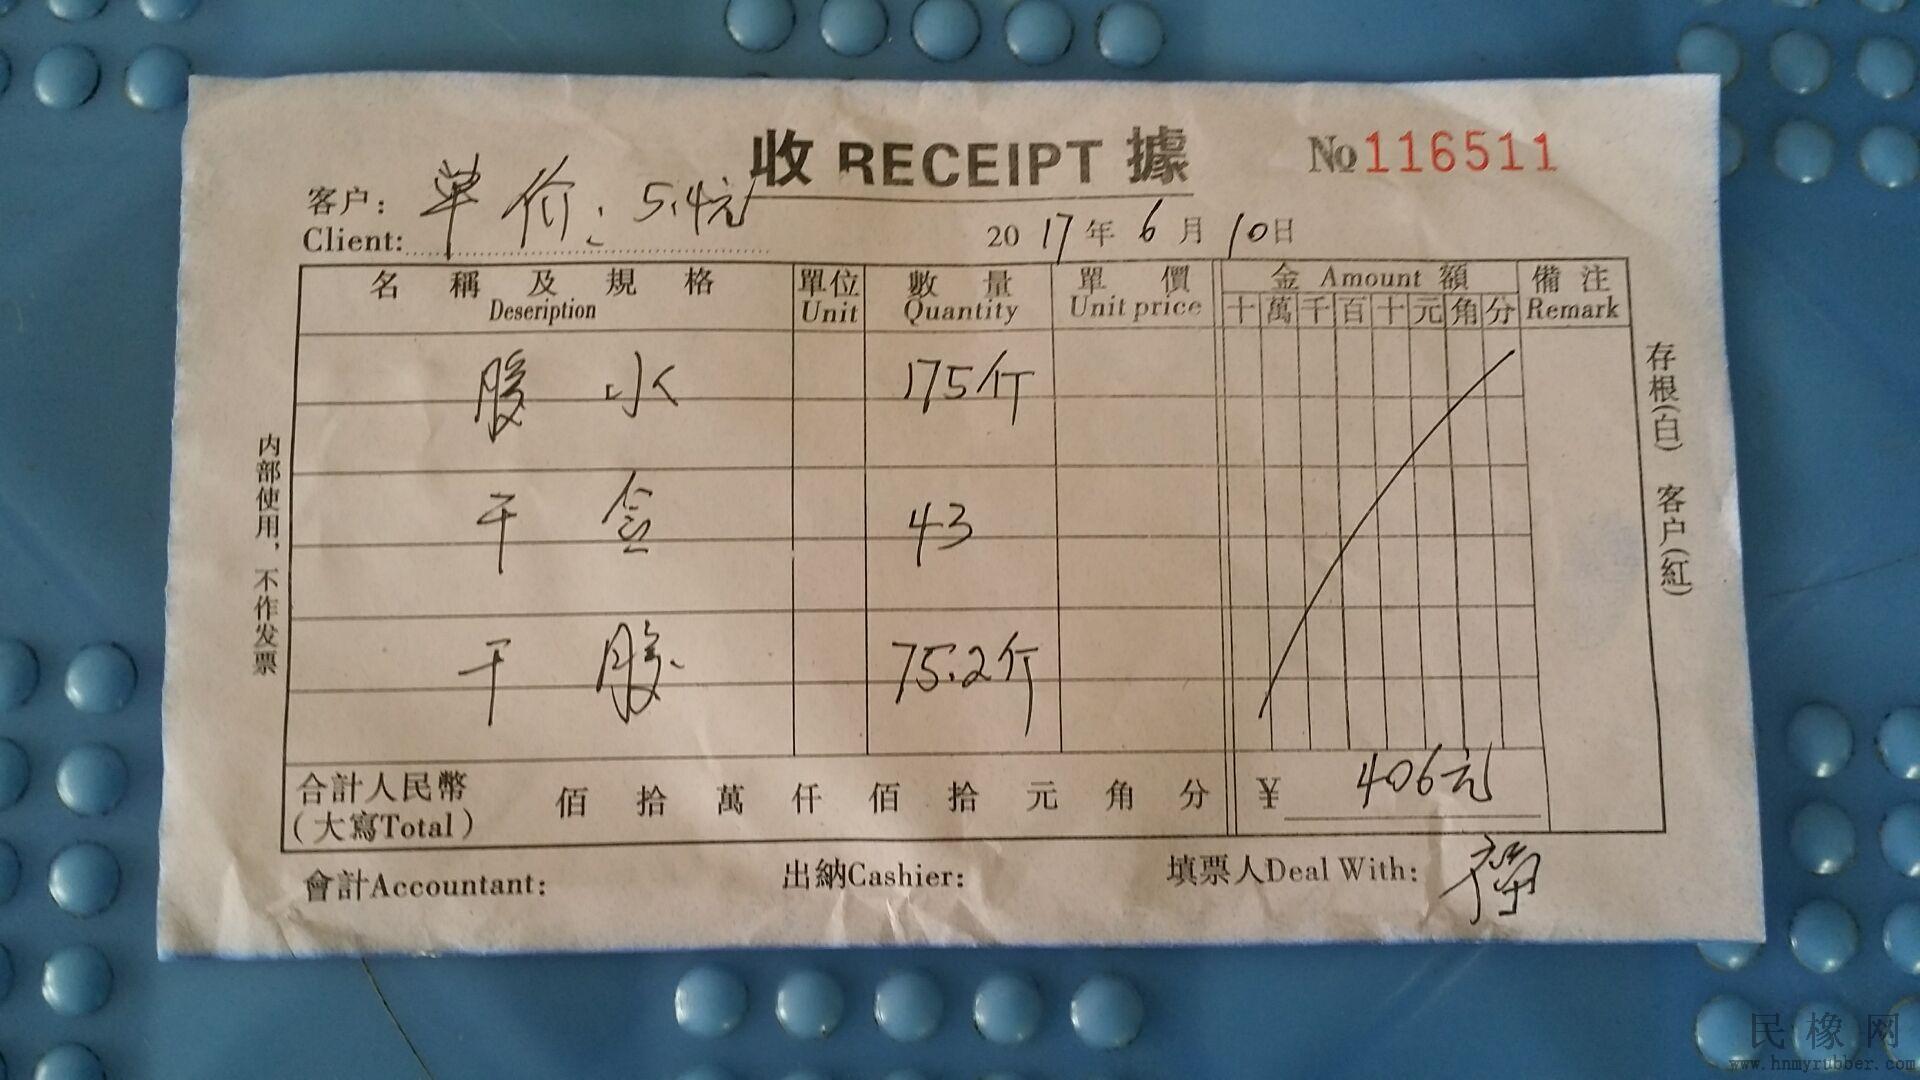 收 RECEIPT 據
No 116511
客户: 单价: 5.4元
Client:
2017年 6月 10日
名稱及規格 單位 數量 單價 金 Amount 額 備注
Deseription Unit Quantity Unit price 十 萬 千 百 十 元 角 分 Remark
胶水 175斤
干含 43
干胶 75.2斤
合計人民幣 佰 拾 萬 仟 佰 拾 元 角 分 ¥ 406元
(大寫Total)
會計Accountant: 出納Cashier: 填票人Deal With:
内部使用，不作发票
存根(白) 客户(紅)
民橡网
www.hnmyrubber.com